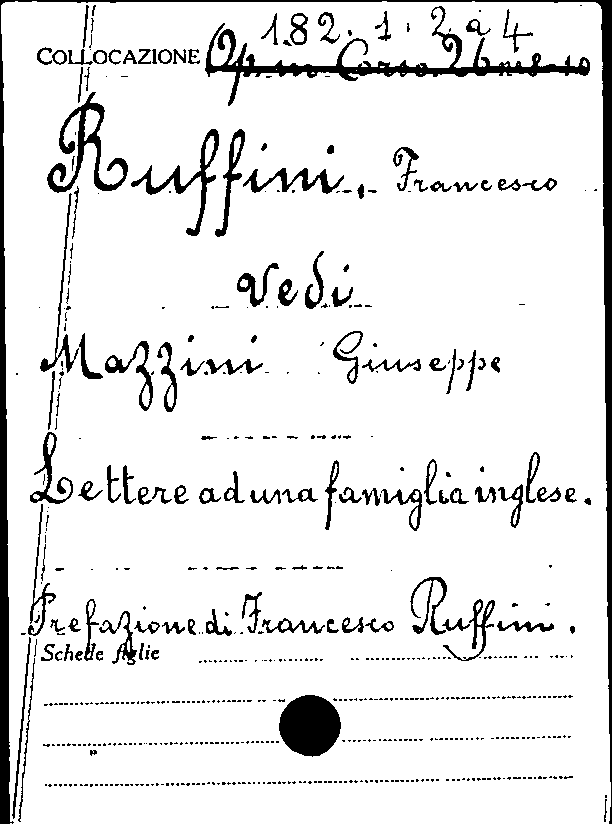 182. 1. 2 a 4
COLLOCAZIONE Op. in Corso. 26
Ruffini, Francesco
Vedi
Mazzini Giuseppe
Lettere ad una famiglia inglese.
Prefazione di Francesco Ruffini.
Schede figlie